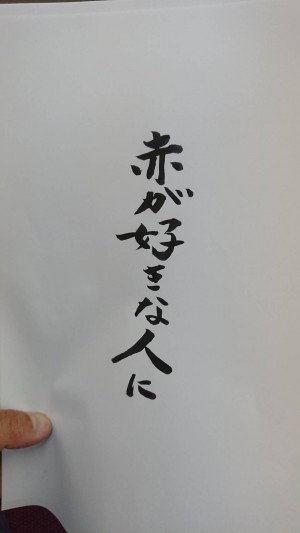 赤が好きな人に